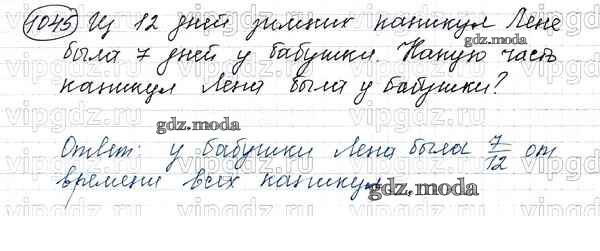 1045 Из 12 дней зимних каникул Лене
была 7 дней у бабушки. Какую часть
каникул Лена была у бабушки?
gdz.moda
Ответ: у бабушки Лена была 7/12 от
времени всех каникул
gdz.moda